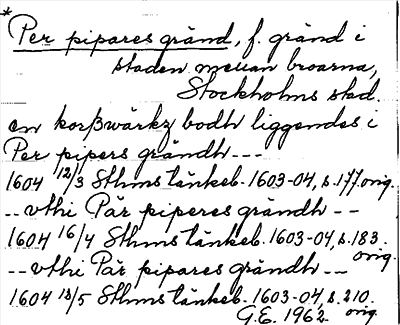 *
Per pipares gränd, f. gränd i
staden mellan broarna,
Stockholms stad.
en korßwärkz bodh liggendes i
Per pipers grändh ---
1604 12/3 Sthms tänkeb. 1603-04, s. 177 orig.
-- vthi Pär piperes grändh --
1604 16/4 Sthms tänkeb. 1603-04, s. 183 orig.
-- vthi Pär pipares grändh --
1604 18/5 Sthms tänkeb. 1603-04, s. 210 orig.
G.E. 1962